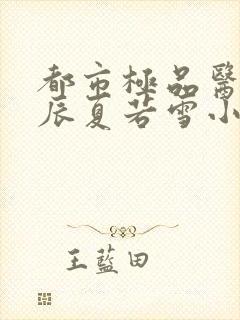 都市極品醫
辰夏若雪小
王藍田